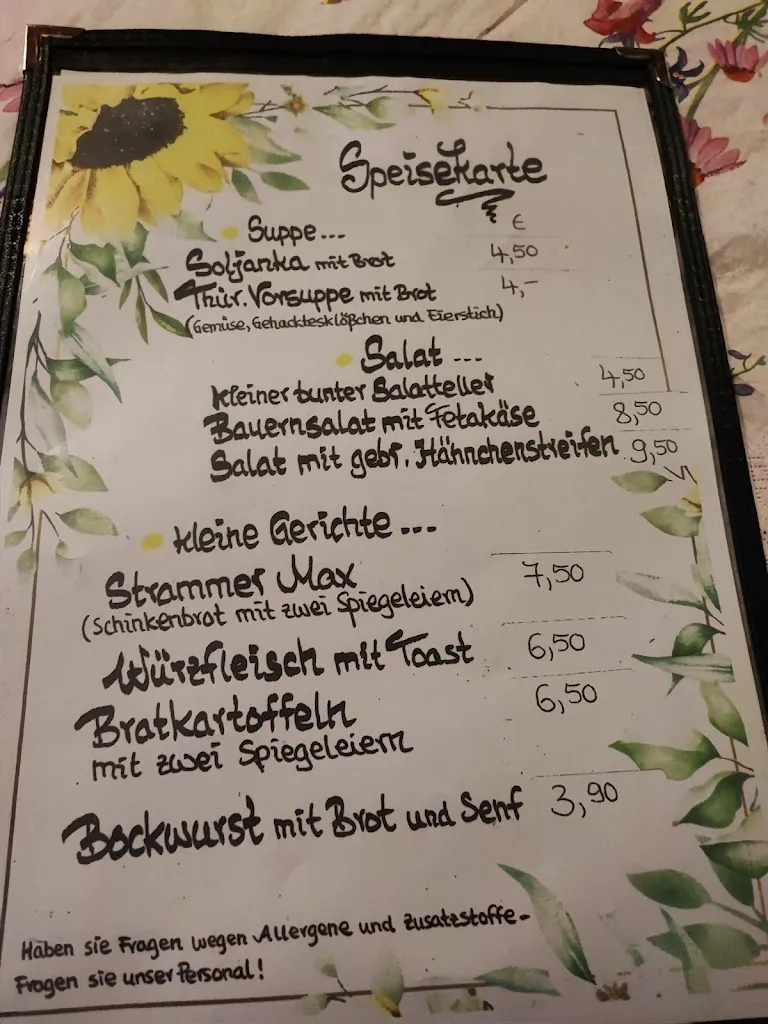 Speisekarte
€
Suppe...
Soljanka mit Brot 4,50
Thür. Vorsuppe mit Brot 4,-
(Gemüse, Gehacktesklößchen und Eierstich)
Salat ...
kleiner bunter Salatteller 4,50
Bauernsalat mit Fetakäse 8,50
Salat mit gebr. Hähnchenstreifen 9,50
kleine Gerichte...
Strammer Max 7,50
(Schinkenbrot mit zwei Spiegeleiern)
Würzfleisch mit Toast 6,50
Bratkartoffeln 6,50
mit zwei Spiegeleiern
Bockwurst mit Brot und Senf 3,90
Haben sie Fragen wegen Allergene und Zusatzstoffe-
Fragen sie unser Personal!